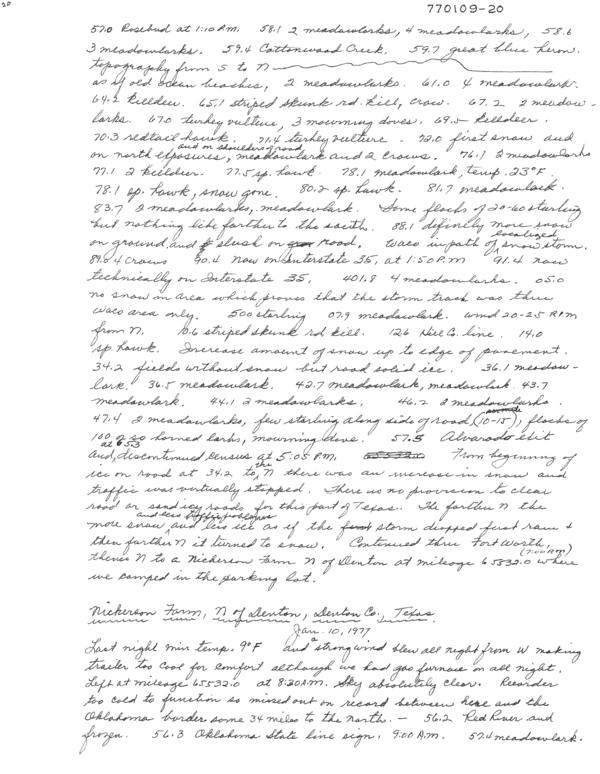 20
770109-20
57.0 Rosebud at 1:10 P.M. 58.1 2 meadowlarks, 4 meadowlarks, 58.6
3 meadowlarks. 59.4 Cottonwood Creek. 59.7 great blue heron.
topography from S to N
as of old ocean beaches, 2 meadowlarks. 61.0 4 meadowlark.
64.2 killdeer. 65.1 striped skunk rd. kill, crow. 67.2 2 meadow-
larks. 67.0 turkey vulture, 3 mourning doves. 69.5 killdeer.
70.3 redtail hawk. 71.4 turkey vulture. 72.0 first snow and
and on shoulders of road
on north exposures, meadowlark and 2 crows. 76.1 2 meadowlarks
77.1 2 killdeer. 77.5 sp. hawk. 78.1 meadowlark, temp. 23°F.
78.1 sp. hawk, snow gone. 80.2 sp. hawk. 81.7 meadowlark.
83.7 2 meadowlarks, meadowlark. Some flocks of 20-60 starling
but nothing like farther to the south. 88.1 definitely more snow
on ground and slush on road. Waco in path of localized snow storm.
89.4 crows 90.4 now on Interstate 35, at 1:50 P.M 91.4 now
technically on Interstate 35. 401.8 4 meadowlarks. 05.0
no snow in area which proves that the storm track was thru
Waco area only. 500 starling 07.9 meadowlark. wind 20-25
from N. 10.6 striped skunk rd kill. 12.6 Hill Co. line. 14.0
sp. hawk. Increase amount of snow up to edge of pavement.
34.2 fields without snow but road solid ice. 36.1 meadow-
lark. 36.5 meadowlark. 42.7 meadowlark, meadowlark. 43.7
meadowlark. 44.1 2 meadowlarks. 46.2 2 meadowlarks
47.4 2 meadowlarks, few starling along side of road (10-15), flocks of
100 or so horned larks, mourning dove. 57.5 Alvarado exit
and discontinued census at 5:05 P.M. From beginning of
ice on road at 34.2 to the N there was an increase in snow and
traffic was virtually stopped. There is no provision to clear
road or sand icy roads for this part of Texas. The farther N the
more snow and less ice as if the storm dropped first rain +
then farther N it turned to snow. Continued thru Fort Worth,
thence N to a Nickerson Farm N of Denton at mileage 65532.0 where
we camped in the parking lot.
Nickerson Farm, N of Denton, Denton Co., Texas
Jan. 10, 1977
Last night min temp. 9°F and a strong wind blew all night from W making
trailer too cool for comfort although we had gas furnace on all night.
Left at mileage 65532.0 at 8:20 A.M. Sky absolutely clear. Recorder
too cold to function so missed out on record between here and the
Oklahoma border some 34 miles to the north. — 56.2 Red River and
frozen. 56.3 Oklahoma State line sign, 9:00 A.M. 57.4 meadowlark.